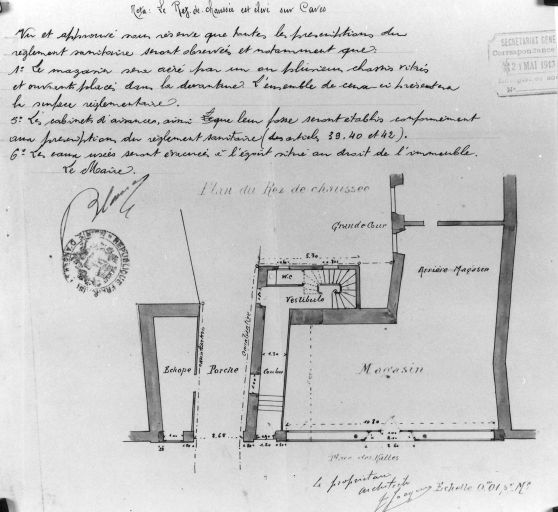 Nota: Le Rez-de-Chaussée est élevé sur Caves
Vu et approuvé sous réserve que toutes les prescriptions du
règlement sanitaire seront observées et notamment que:
1° Le magasin sera aéré par un ou plusieurs chassis vitrés
et ouvrant placés dans la devanture. L'ensemble de ceux-ci présentera
la surface réglementaire.
5° Les cabinets d'aisances, ainsi que leur fosse seront établis conformément
aux prescriptions du règlement sanitaire (des articles 39, 40 et 42).
6° Les eaux usées seront évacuées à l'égout situé au droit de l'immeuble.
Le Maire.
SECRÉTARIAT GÉNÉRAL
Correspondance
21 MAI 1917
N°
Plan du Rez de chaussée
Grande Cour
Arrière Magasin
5.70
W.C
Vestibule
Echope
Porche
Couloir
Magasin
1.30
2.68
10.20
Place des Halles
Le propriétaire
architecte
Echelle 0.01 p. M.